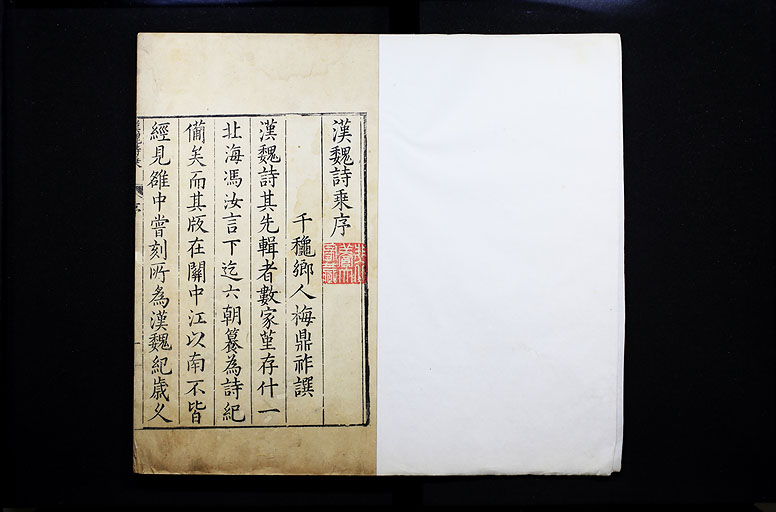 漢魏詩乘序
千穐鄉人梅鼎祚譔
漢魏詩其先輯者數家菫存什一
北海馮汝言下迄六朝纂為詩紀
備矣而其版在關中江以南不皆
經見雒中嘗刻所為漢魏紀歲久